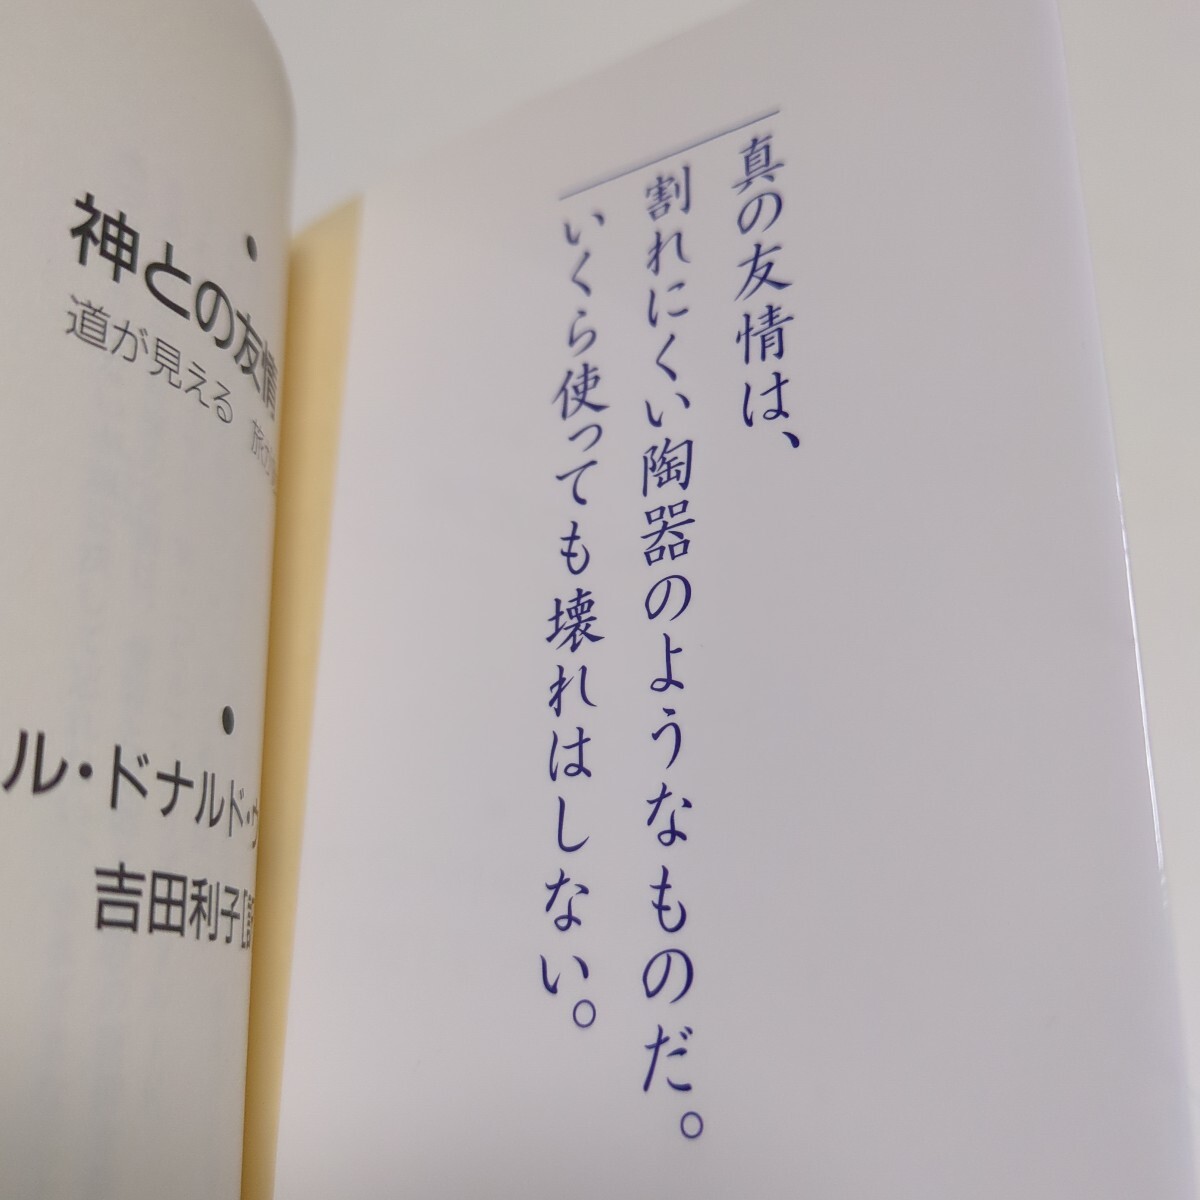 真の友情は、
割れにくい陶器のようなものだ。
いくら使っても壊れはしない。
神との友情
道が見える 旅が
ル・ドナルド・ウ
吉田利子[訳